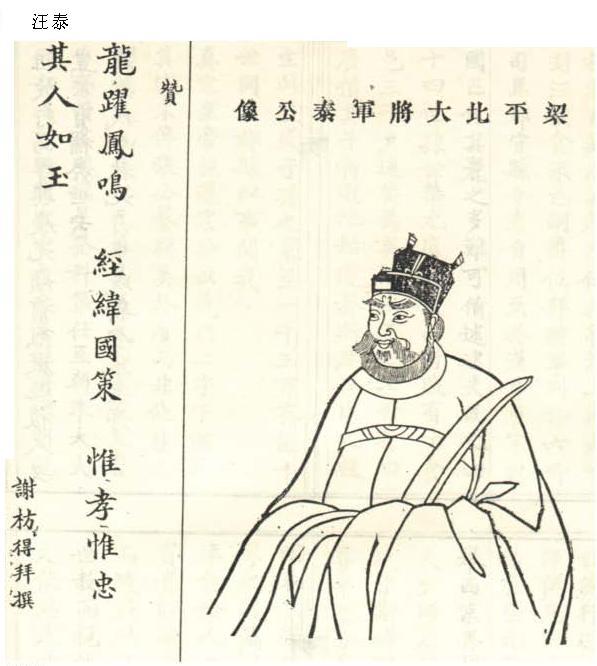 汪泰
梁平北大將軍泰公像
贊
龍躍鳳鳴 經緯國策 惟孝惟忠
其人如玉
謝枋得拜撰